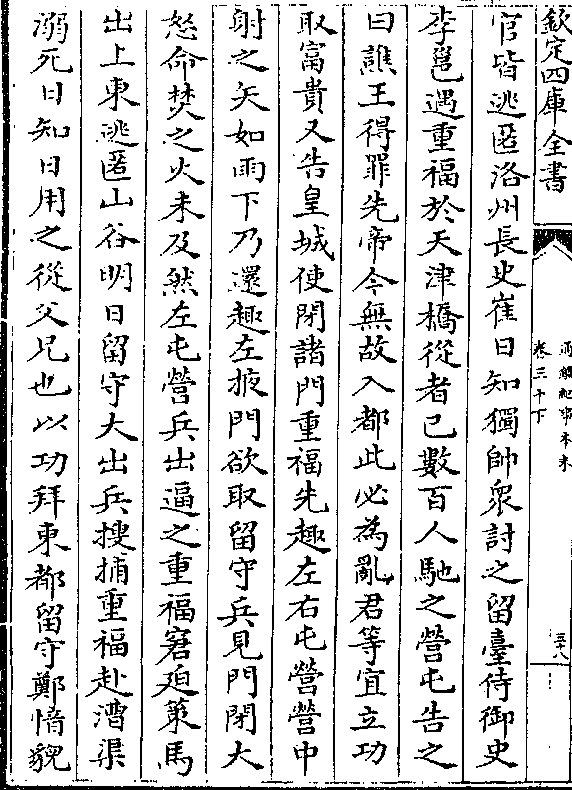 欽定四庫全書
通鑑紀事本末
卷三十下
五十八
官皆逃匿洛州長史崔日知獨帥衆討之留臺侍御史
李邕遇重福於天津橋從者已數百人馳之營屯告之
曰譙王得罪先帝今無故入都此必為亂君等宜立功
取富貴又告皇城使閉諸門重福先趣左右屯營營中
射之矢如雨下乃還趣左掖門欲取留守兵見門閉大
怒命焚之火未及然左屯營兵出逼之重福窘迫策馬
出上東逃匿山谷明日留守大出兵搜捕重福赴漕渠
溺死日知日用之從父兄也以功拜東都留守鄭愔貌